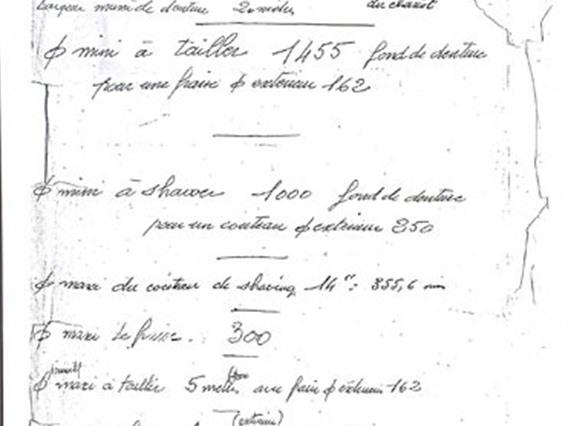 Largeur maxi de denture 2 mètres du chariot
φ mini à tailler 1455 fond de denture
pour une fraise φ extérieur 162
φ mini à shaver 1000 fond de denture
pour un couteau φ extérieur 250
φ maxi du couteau de shaving 14" = 355,6 mm
φ maxi de fraise. 300
φ maxi à tailler 5 mètres avec fraise φ extérieur 162
(extérieur)